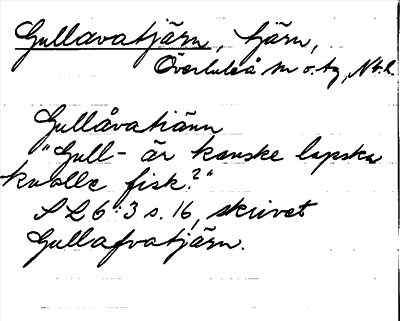 Gullavatjärn, tjärn,
Överluleå sn o. tg, Nb. l.
Gullåvatiänn
"Gull- är kanske lapska
kuolle fisk?"
SL 6:3 s. 16, skrivet
Gullafvatjärn.